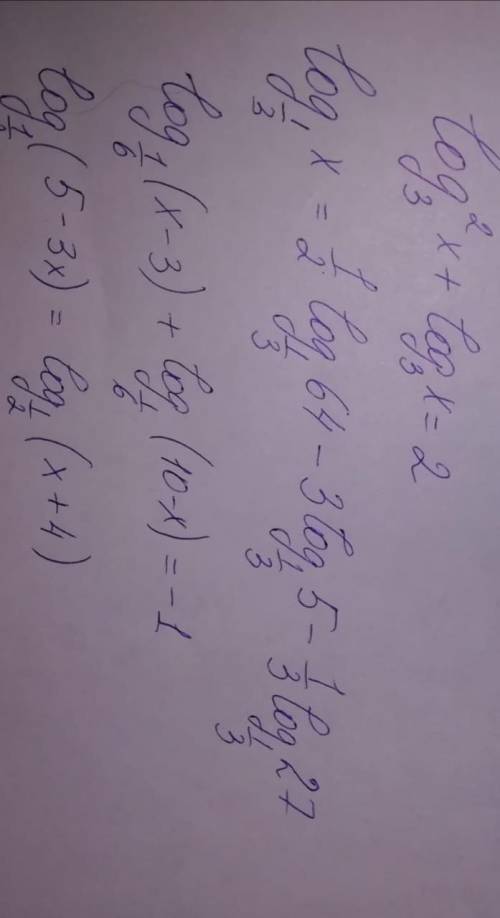 log₃² x + log₃ x = 2
log_{1/3} x = 1/2 log_{1/3} 64 - 3 log_{1/3} 5 - 1/3 log_{1/3} 27
log_{1/6} (x-3) + log_{1/6} (10-x) = -1
log_{1/2} (5-3x) = log_{1/2} (x+4)